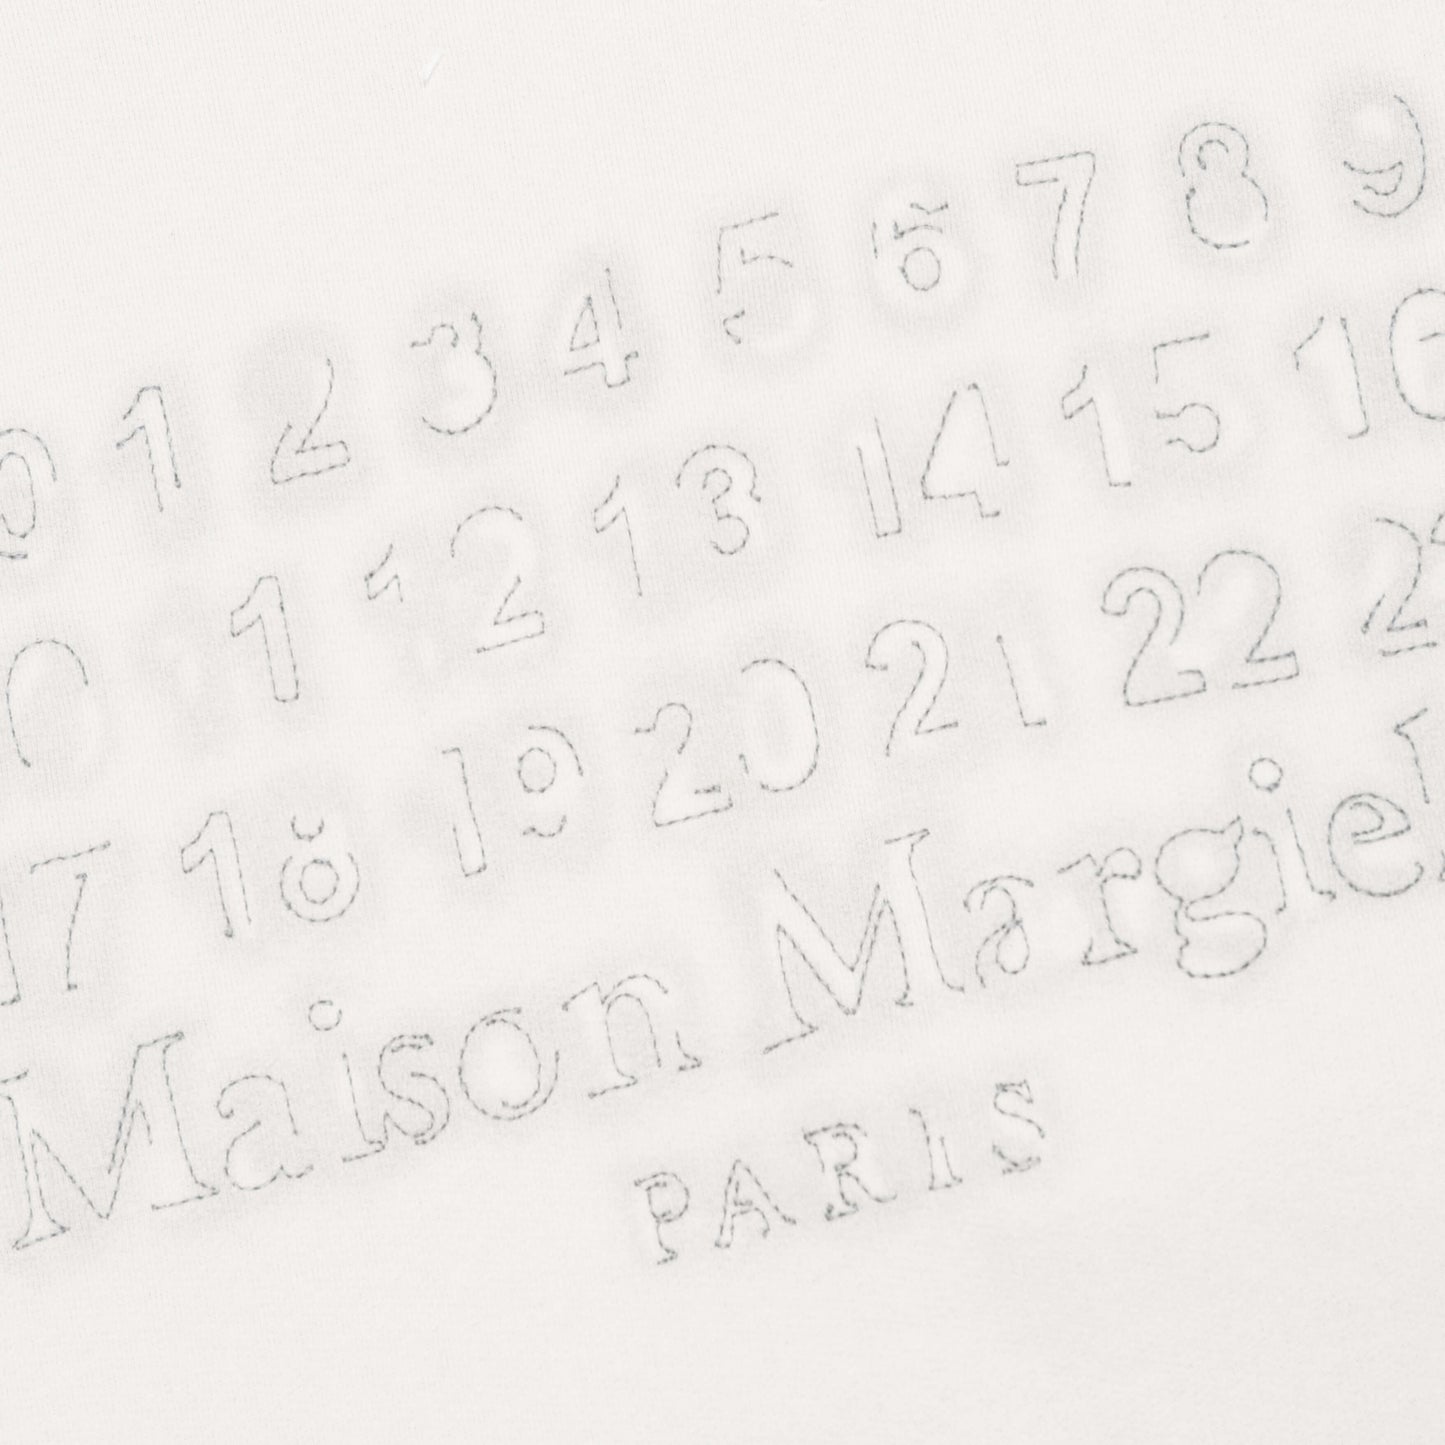 0 1 2 3 4 5 6 7 8 9
0 11 12 13 14 15 16
17 18 19 20 21 22 2
Maison Margiel
PARIS